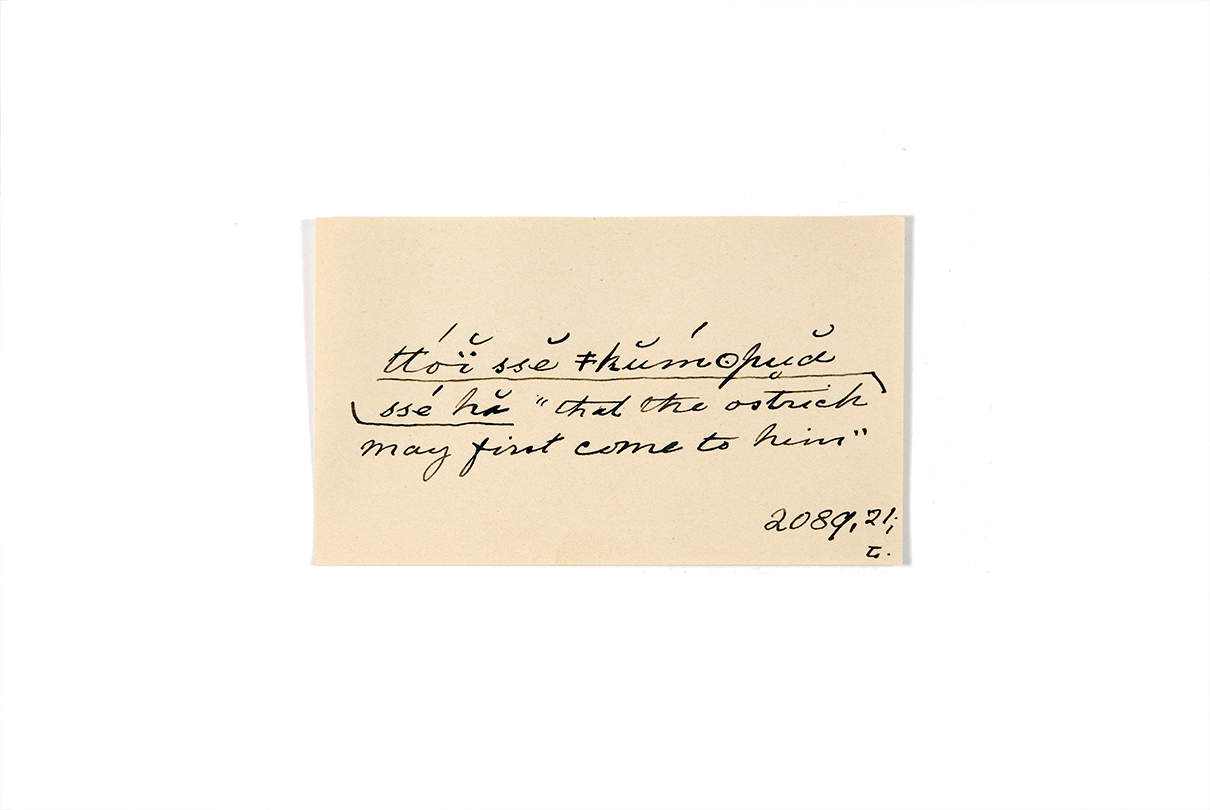 ttóï̆ ssĕ ǂkŭḿʘpụă
ssé hă "that the ostrich
may first come to him"
2089,21;
t.